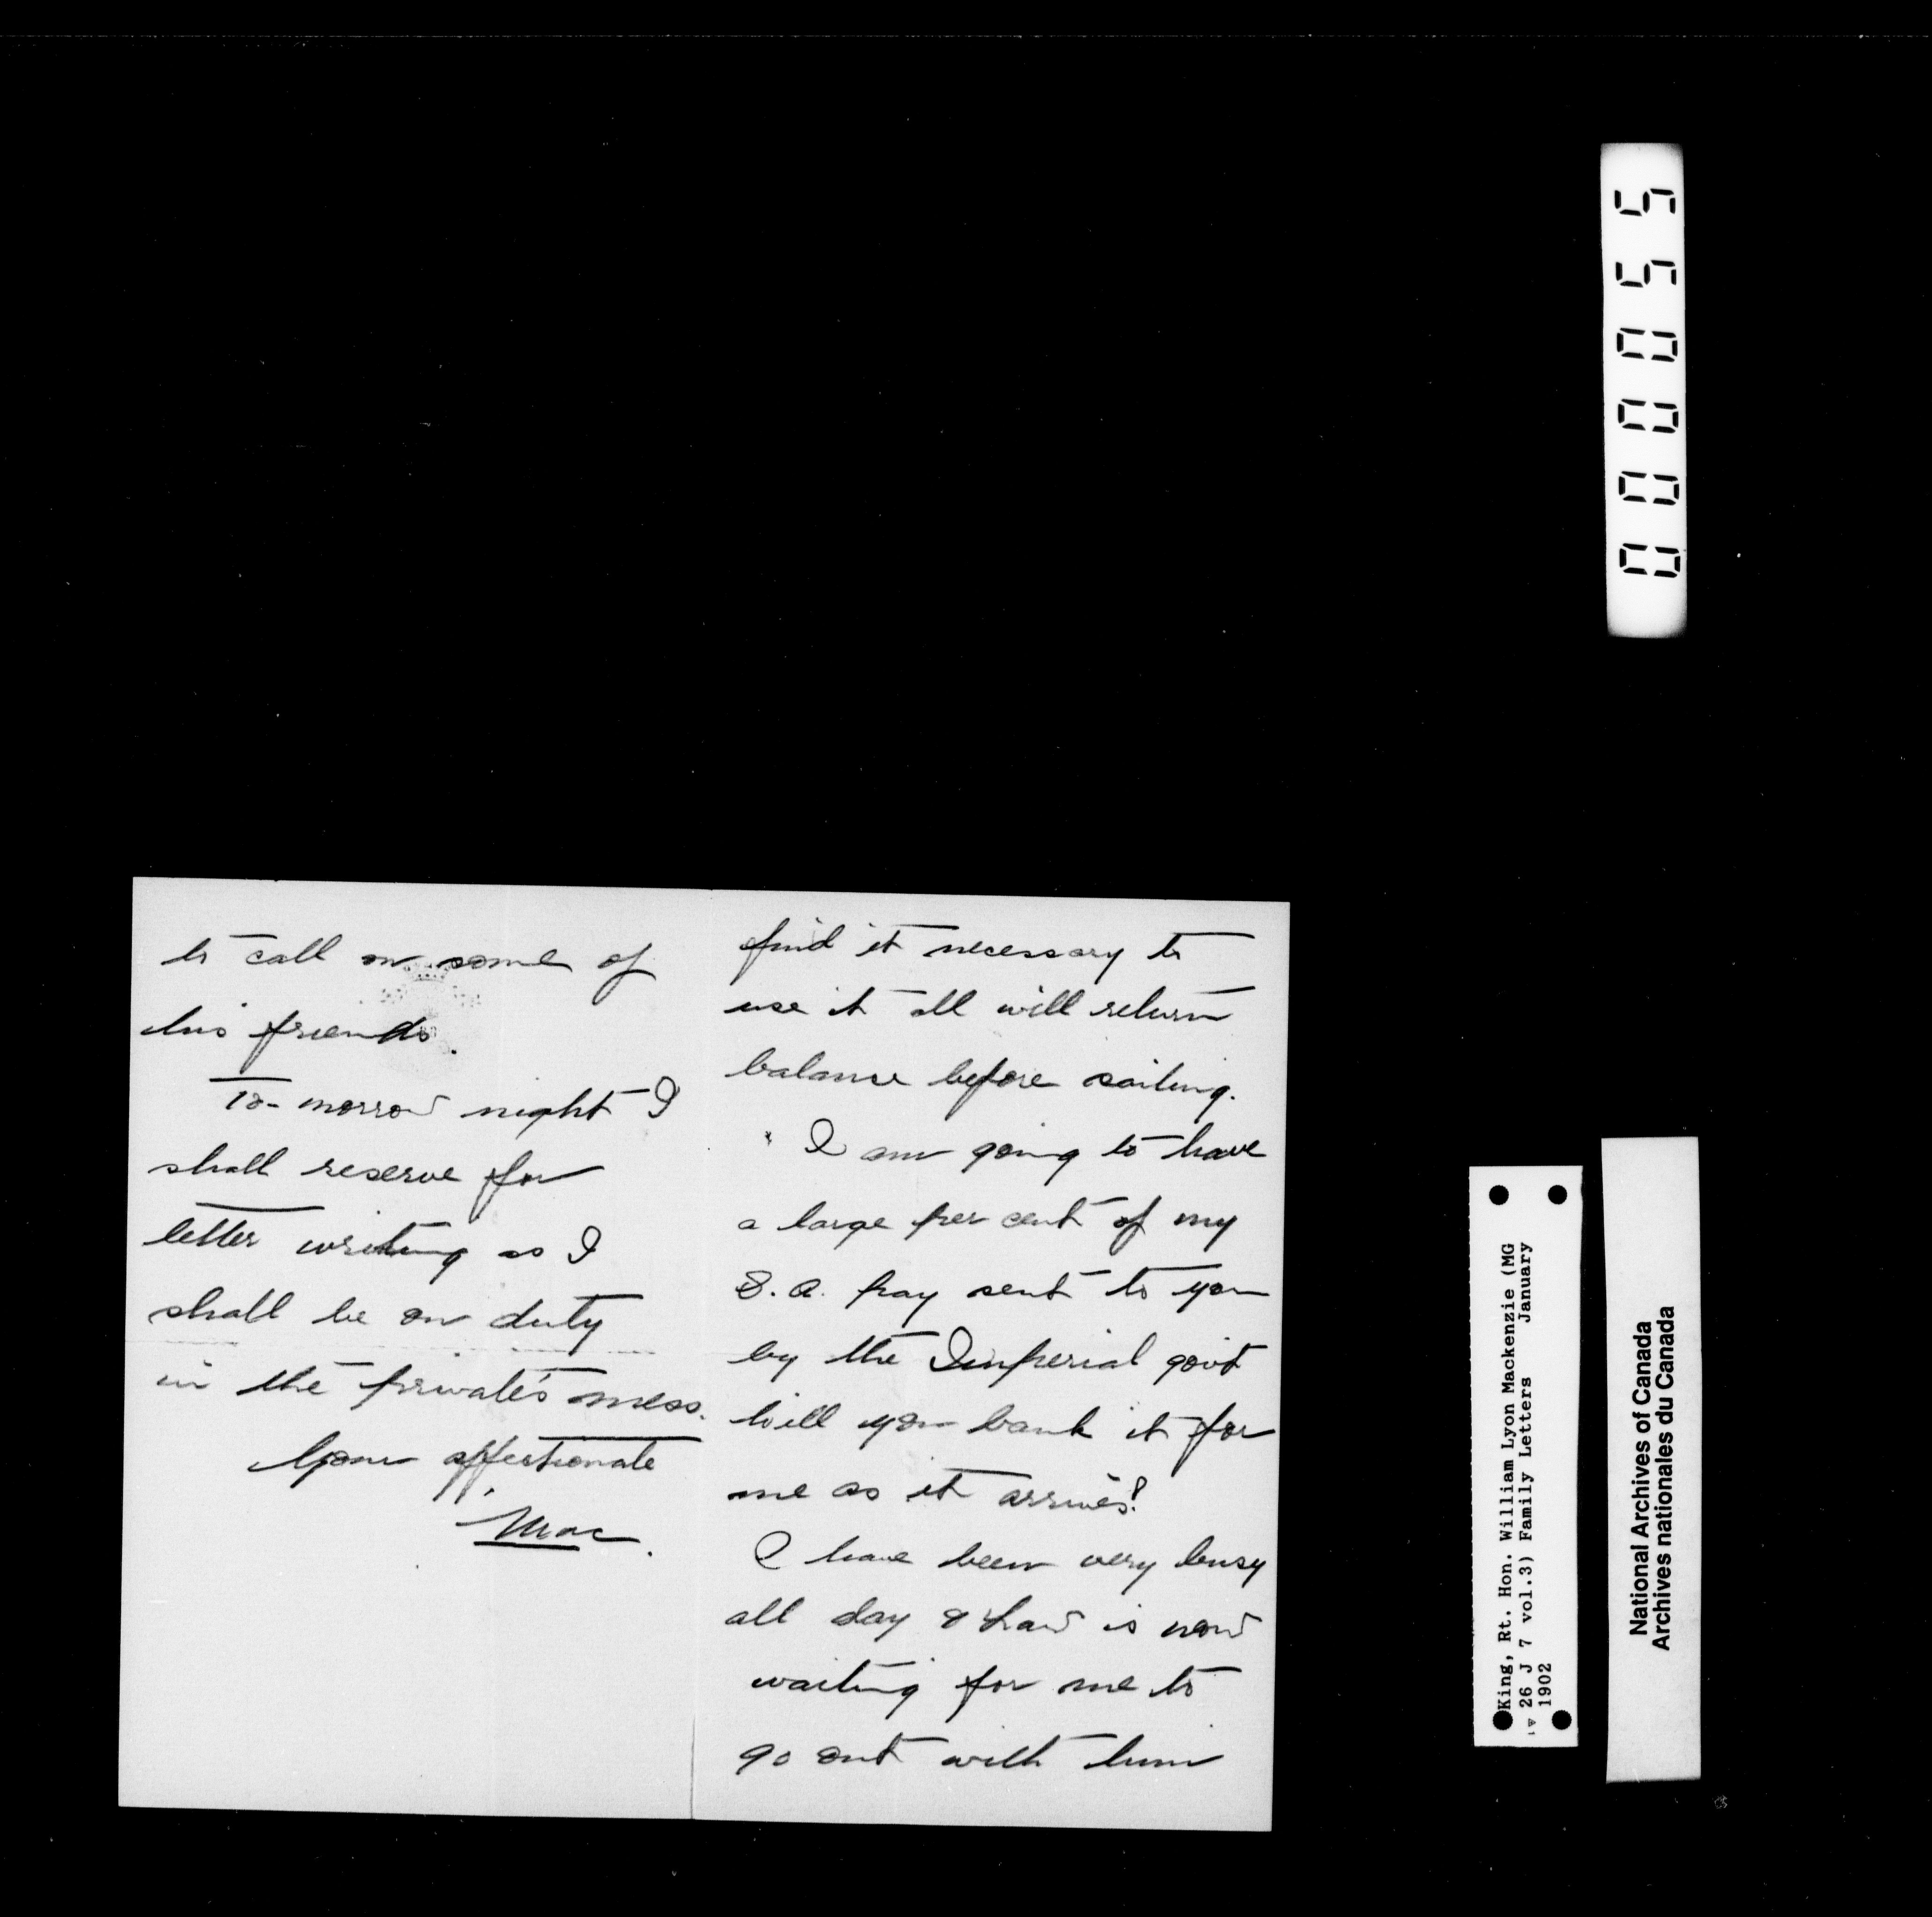 find it necessary to
use it all will return
balance before sailing.
I am going to have
a large per cent of my
S.A. pay sent to you
by the Imperial govt
Will you bank it for
me as it arrives?
I have been very busy
all day & is now
waiting for me to
go out with him
to call on some of
his friends.
To-morrow night I
shall reserve for
letter writing as I
shall be on duty
in the private's mess.
Your affectionate
Mac.
000055
King, Rt. Hon. William Lyon Mackenzie (MG
26 J 7 vol.3) Family Letters January
1902
National Archives of Canada
Archives nationales du Canada